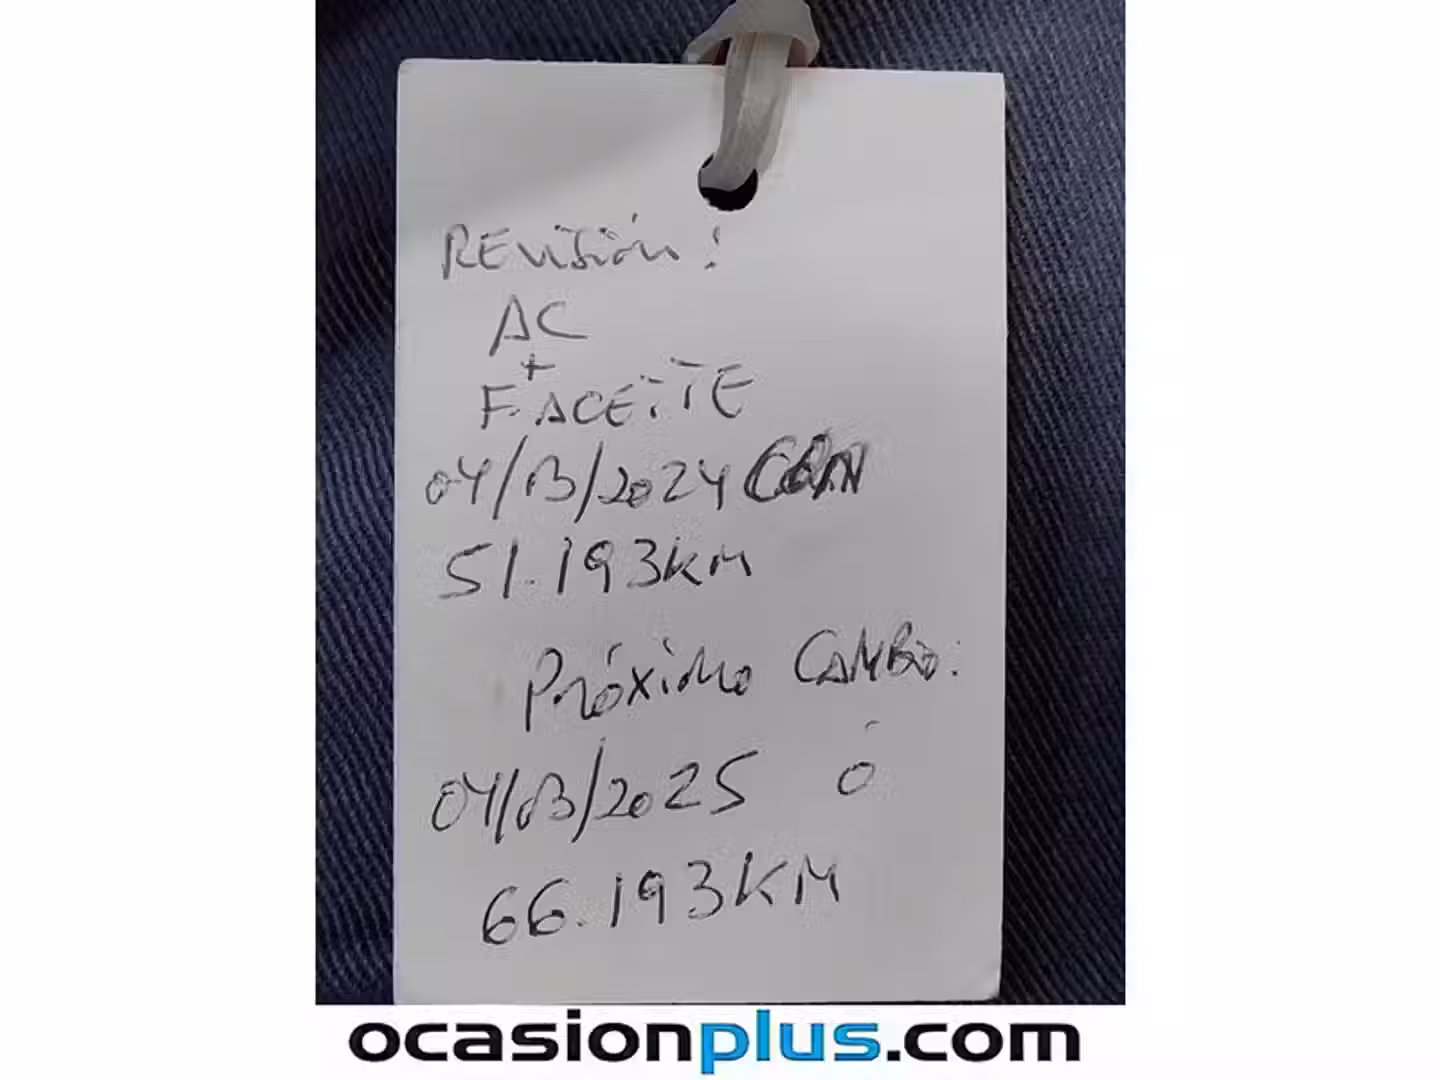 REVISIÓN:
AC
+
F. ACEITE
04/03/2024 CON
51.193KM
PRÓXIMO CAMBIO:
04/03/2025 Ó
66.193KM
ocasionplus.com